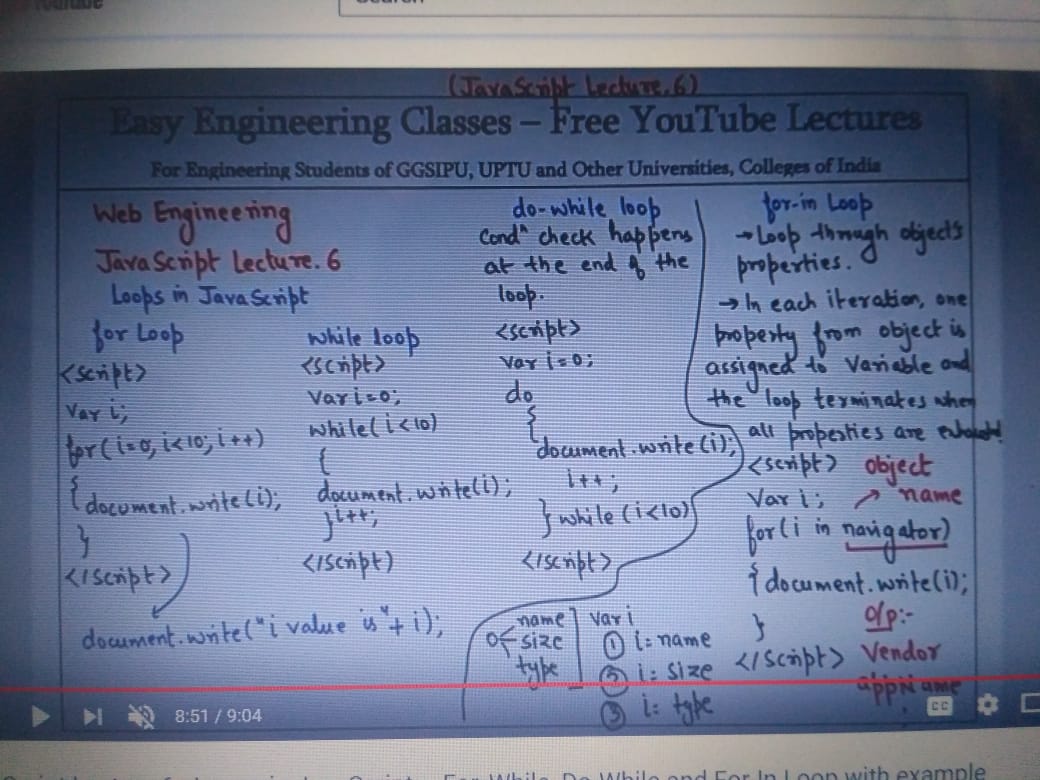 (JavaScript Lecture.6)
Easy Engineering Classes – Free YouTube Lectures
For Engineering Students of GGSIPU, UPTU and Other Universities, Colleges of India
Web Engineering
JavaScript Lecture.6
Loops in JavaScript
for Loop
<script>
Var i;
for(i=0; i<10; i++)
{ document.write(i);
}
</script>
document.write("i value is"+ i);
while loop
<script>
Var i=0;
while(i<10)
{
document.write(i);
}i++;
</script)
do-while loop
Condⁿ check happens
at the end of the
loop.
<script>
var i=0;
do
{
document.write(i);
i++;
} while (i<10)
</script>
for-in Loop
→ Loop through object's
properties.
→ In each iteration, one
property from object is
assigned to Variable and
the loop terminates when
all properties are
<script> object
Var i; name
for(i in navigator)
{ document.write(i);
}
</script>
o/p:-
Vendor
appName
name
size
type
var i
① i= name
② i= size
③ i= type
8:51 / 9:04
CC
For While, Do While and For In Loop with example